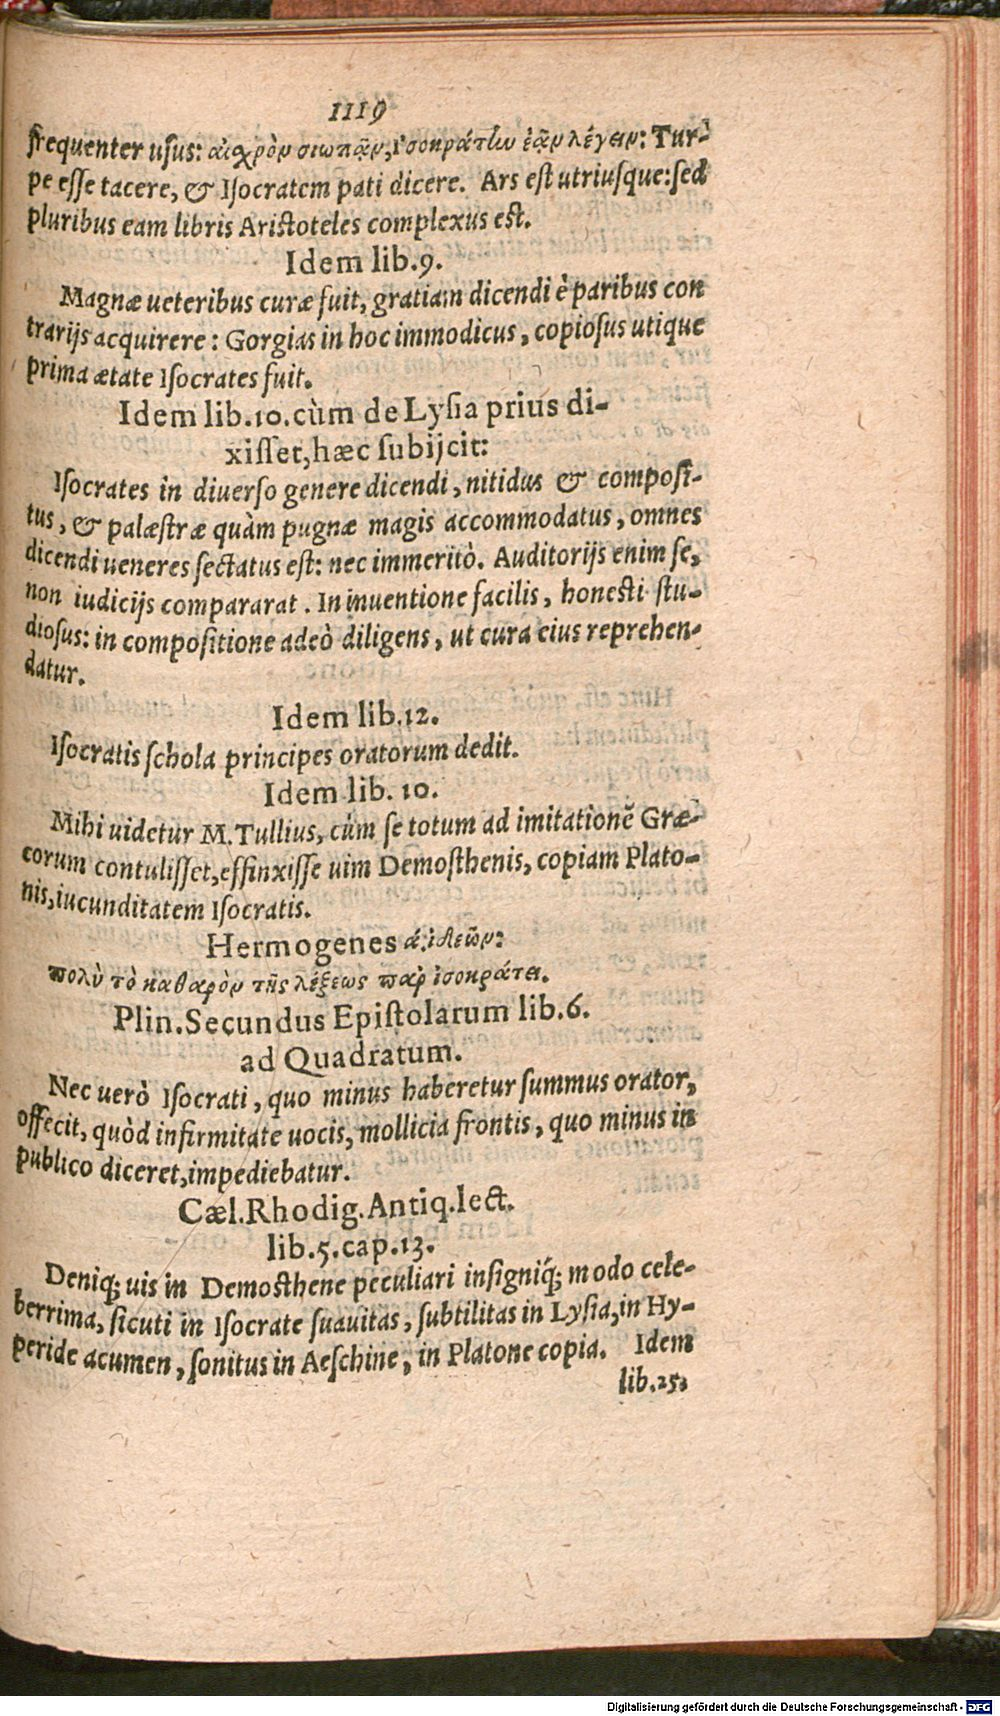 1119
frequenter usus: αἰσχρὸν σιωπᾷν, Ισοκράτην ἐᾷν λέγειν: Tur-
pe esse tacere, & Isocratem pati dicere. Ars est utriusque: sed
pluribus eam libris Aristoteles complexus est.
Idem lib.9.
Magnæ ueteribus curæ fuit, gratiam dicendi è paribus con
trarijs acquirere: Gorgias in hoc immodicus, copiosus utique
prima ætate Isocrates fuit.
Idem lib.10. cùm de Lysia prius di-
xisset, hæc subijcit:
Isocrates in diuerso genere dicendi, nitidus & composi-
tus, & palæstræ quàm pugnæ magis accommodatus, omnes
dicendi ueneres sectatus est: nec immeritò. Auditorijs enim se,
non iudicijs compararat. In inuentione facilis, honesti stu-
diosus: in compositione adeò diligens, ut cura eius reprehen-
datur.
Idem lib.12.
Isocratis schola principes oratorum dedit.
Idem lib. 10.
Mihi uidetur M. Tullius, cúm se totum ad imitationẽ Græ-
corum contulisset, effinxisse uim Demosthenis, copiam Plato-
nis, iucunditatem Isocratis.
Hermogenes
πολὺ τὸ καθαρὸν τῆς λέξεως παρ ἰσοκράτει.
Plin. Secundus Epistolarum lib.6.
ad Quadratum.
Nec uerò Isocrati, quo minus haberetur summus orator,
offecit, quòd infirmitate uocis, mollicia frontis, quo minus in
publico diceret, impediebatur.
Cæl. Rhodig. Antiq. lect.
lib.5. cap.13.
Deniq; uis in Demosthene peculiari insigniq́; modo cele-
berrima, sicuti in Isocrate suauitas, subtilitas in Lysia, in Hy-
peride acumen, sonitus in Aeschine, in Platone copia. Idem
lib.25.
Digitalisierung gefördert durch die Deutsche Forschungsgemeinschaft - DFG